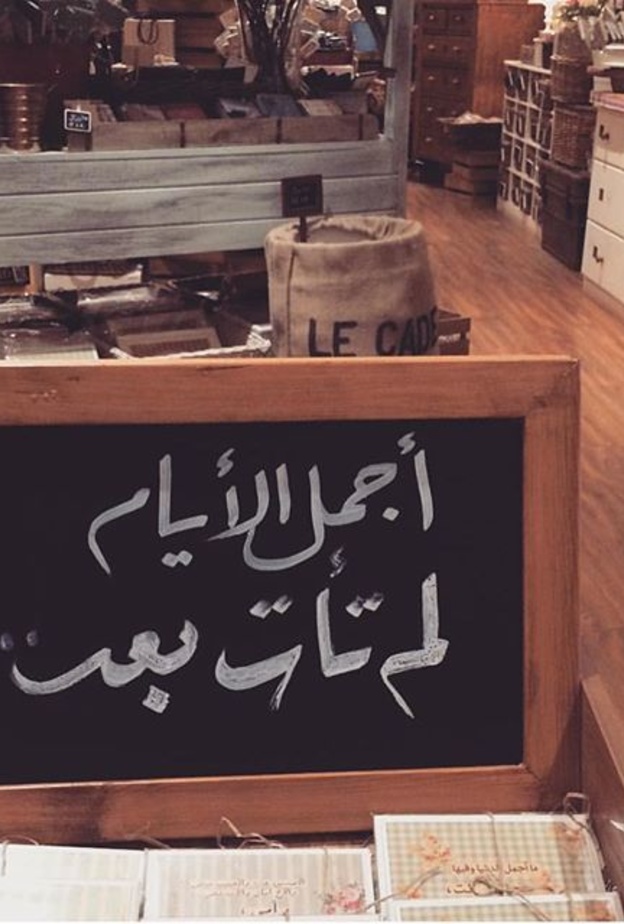 LE CAD
أجمل الأيام
لم تأت بعد
ما أجمل الدنيا وفيها